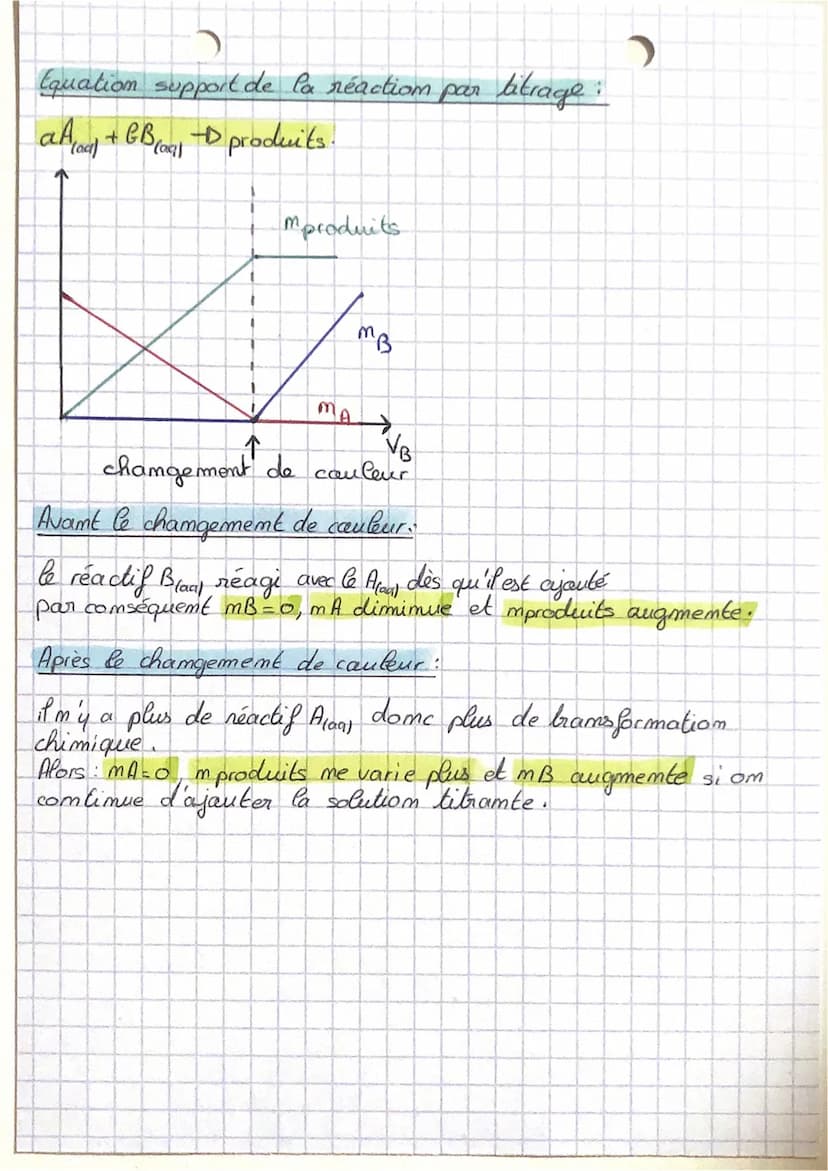 Equation support de la réaction par titrage :
aA(aq) + bB(aq) → produits.
nproduits
nB
nA
VB
changement de couleur
Avant le changement de couleur :
le réactif B(aq) réagi avec le A(aq) dès qu'il est ajouté
par conséquent nB = 0, nA diminue et nproduits augmente.
Après le changement de couleur :
il n'y a plus de réactif A(aq) donc plus de transformation
chimique.
Alors : nA = 0, nproduits ne varie plus et nB augmente si on
continue d'ajouter la solution titrante.